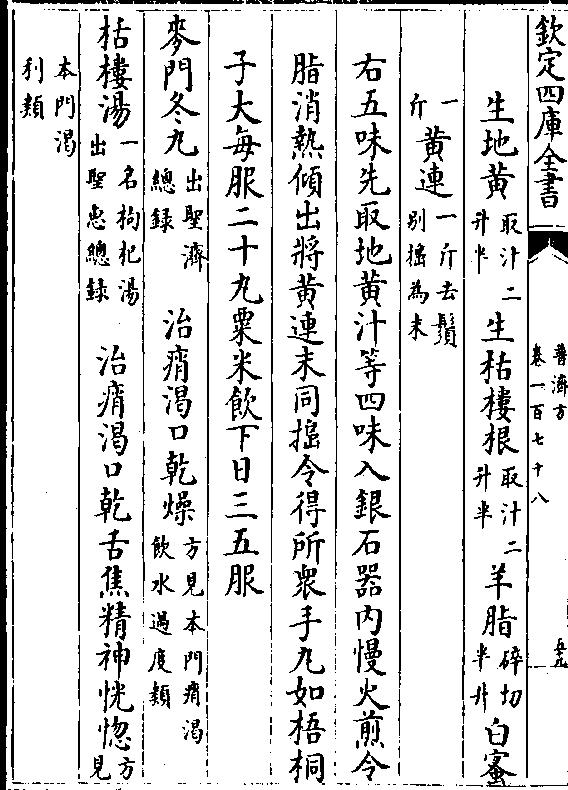 欽定四庫全書
普濟方
卷一百七十八
生地黄取汁二升半生栝樓根取汁二升半羊脂碎切半升白蜜
一斤黄連一斤去鬚别搗為末
右五味先取地黄汁等四味入銀石器内慢火煎令
脂消熱傾出將黄連末同搗令得所衆手丸如梧桐
子大每服二十丸粟米飲下日三五服
麥門冬丸出聖濟總録治痟渴口乾燥方見本門痟渴飲水過度類
栝樓湯一名枸杞湯出聖惠總録治痟渴口乾舌焦精神恍惚方見
本門渴利類